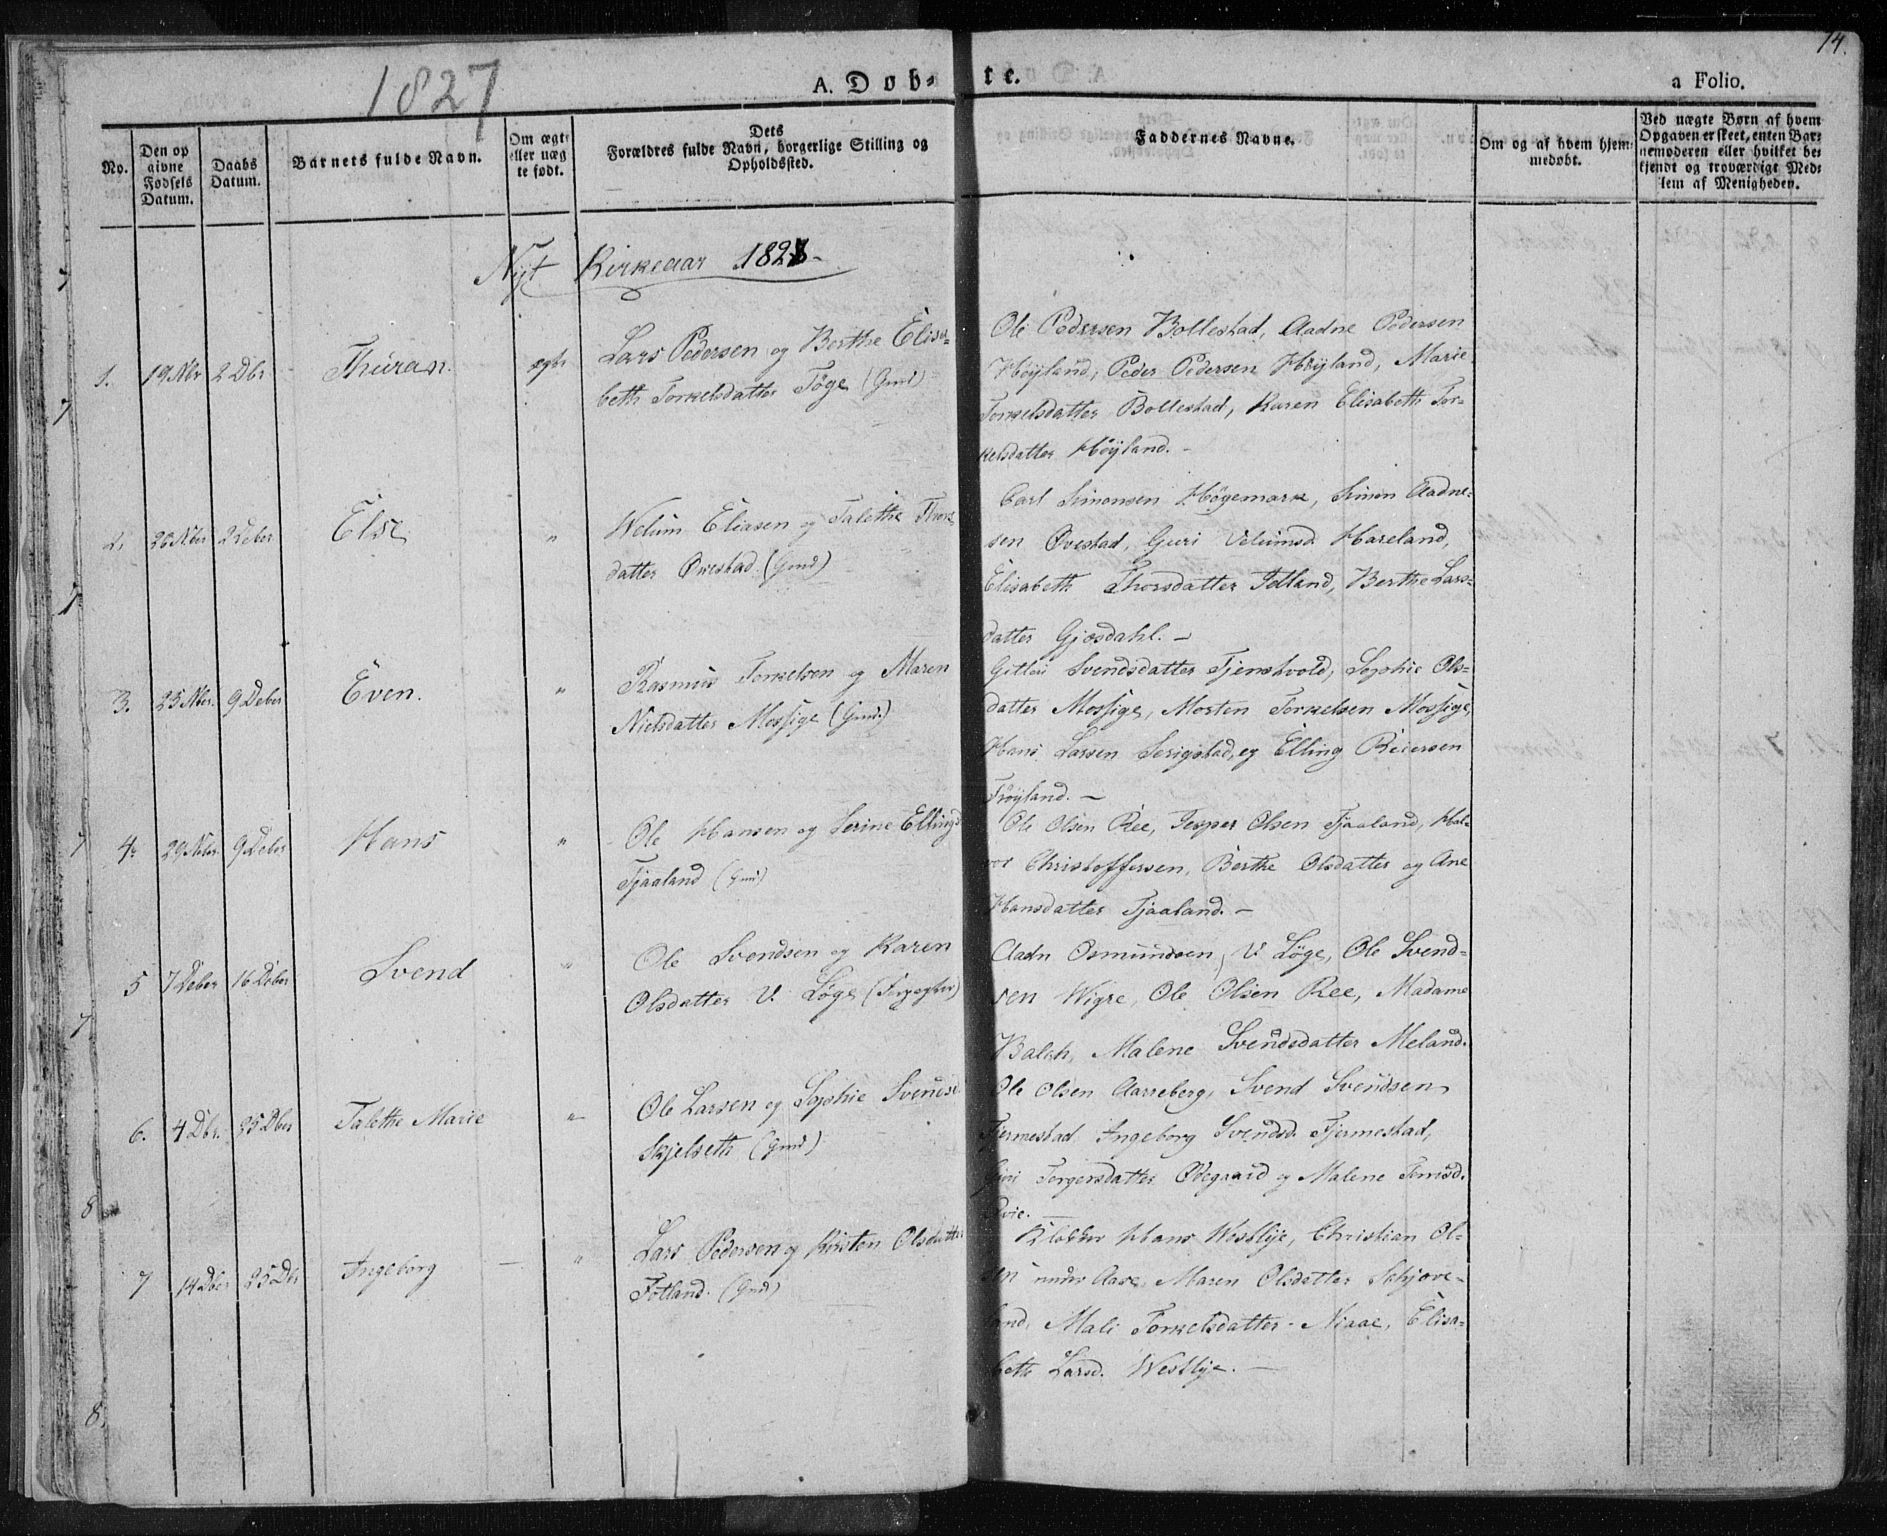 14.
1827
A. Døb-
te.
a Folio.
No.
Den op
givne
Fødsels
Datum.
Daabs
Datum.
Barnets fulde Navn.
Om ægte
eller uæg
te født.
Dets
Forældres fulde Navn, borgerlige Stilling og
Opholdssted.
Faddernes Navne.
Om og af hvem hjem-
medøbt.
Ved uægte Børn af hvem
Opgaven er skeet, enten Bar-
nemoderen eller hvilket be-
kjendt og troværdigt Med-
lem af Menigheden.
Nyt Kirkeaar 1828
1. 19 Nbr 2 Dbr Thuran. ægte
Lars Pedersen og Berthe Elisa-
beth Torkelsdatter Töge (Gmd)
Ole Pedersen Bollestad, Aadne Pedersen
Höyland, Peder Pedersen Höyland, Marie
Torkelsdatter Bollestad, Karen Elisabeth Tor-
kelsdatter Höyland. -
2. 26 Nber 2 Deber Else "
Welum Eliasen og Talethe Thors-
datter Ovestad (Gmd)
Carl Simonsen Högemark, Simon Aadne-
sen Ovestad, Guri Velumsd. Hareland,
Elisabeth Thorsdatter Jelland, Berthe Lars-
datter Gjøsdahl. -
3. 25 Nber. 9 Deber Even. "
Rasmus Torkelsen og Maren
Nielsdatter Mossige (Gmd.)
Svendsdatter Tjenshvold, Sophie Ols-
datter Mossige, Morten Torkelsen Mossige,
Hans Larsen Serigstad, og Elling Reiersen
Fröyland. -
4. 29 Nber. 9 Deber Hans "
Ole Hansen og Serine Ellingsd
Tjaaland (Gmd)
Ole Olsen Ree, Jesper Olsen Tjaaland, Hal-
vor Christoffersen, Berthe Olsdatter og Ane
Hansdatter Tjaaland. -
5 7 Deber 16 Deber Svend "
Ole Svendsen og Karen
Olsdatter V. Löge
Aadn Osmundsen V. Löge, Ole Svend-
sen Wigre, Ole Olsen Ree, Madame
Balch, Malene Svendsdatter Meland.
6. 4 Dbr. 25 Dber Talethe Marie "
Ole Larsen og Sophie Svendsd
Skjelseth (Gmd)
Ole Olsen Aarreberg, Svend Svendsen
Tjermestad Ingeborg Svendsd. Tjermestad,
Guri Torgersdatter Ödegaard og Malene
7 14 Dber 25 Dbr Ingeborg - "
Lars Pedersen og Kirsten Olsdatter
Fotland. (Gmd)
Klokker Hans Westlye, Christian Ol-
sen under Aase, Maren Olsdatter Schjove-
land, Mali Torkelsdatter Niaae, Elisa-
beth Larsd. Westlye. -